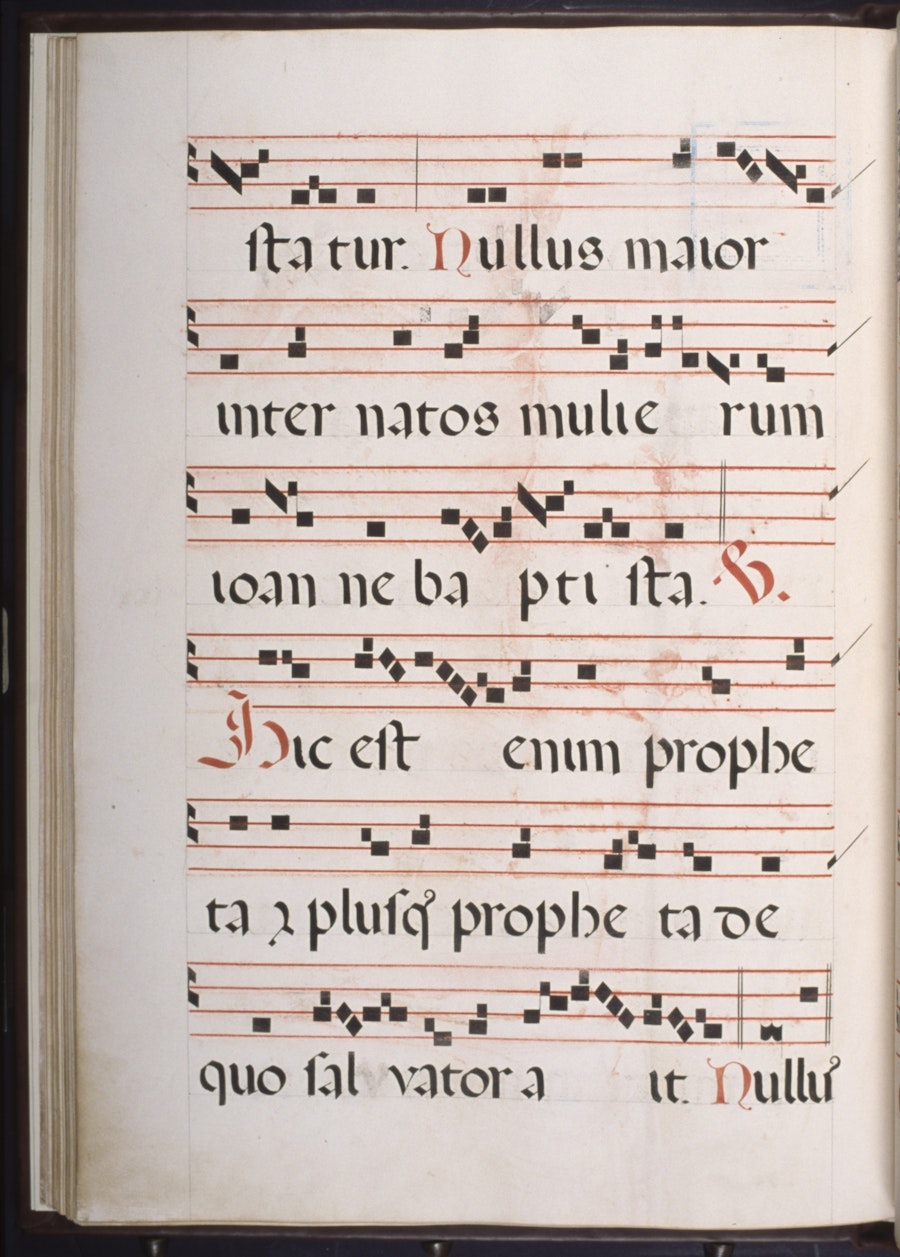 sta tur. Nullus maior
inter natos mulie rum
ioan ne ba pti sta. V.
Hic est enim prophe
ta ⁊ plusqꝫ prophe ta de
quo sal vator a it. Nullꝰ